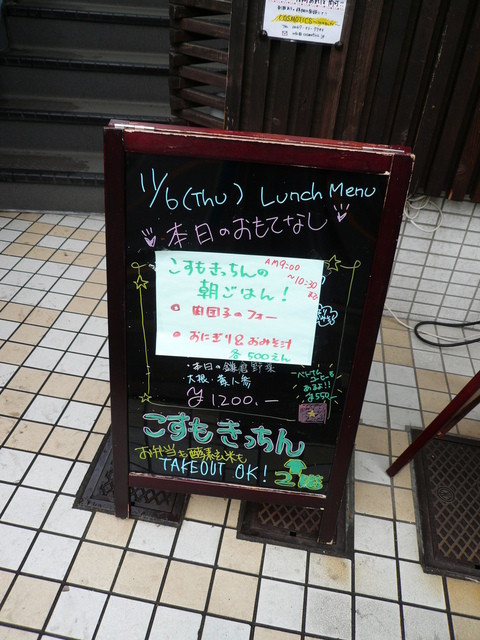 COSMOTICS
11/6(Thu) Lunch Menu
本日のおもてなし
こすもきっちんの
朝ごはん!
AM9:00
~10:30
肉団子のフォー
おにぎり&おみそ汁
各500えん
・本日の鎌倉野菜
大根・黄人参
¥1200.―
べトナム
コーヒーも
あるよ!!
¥550
こすもきっちん
お弁当も酵素玄米も
TAKEOUT OK!
2階